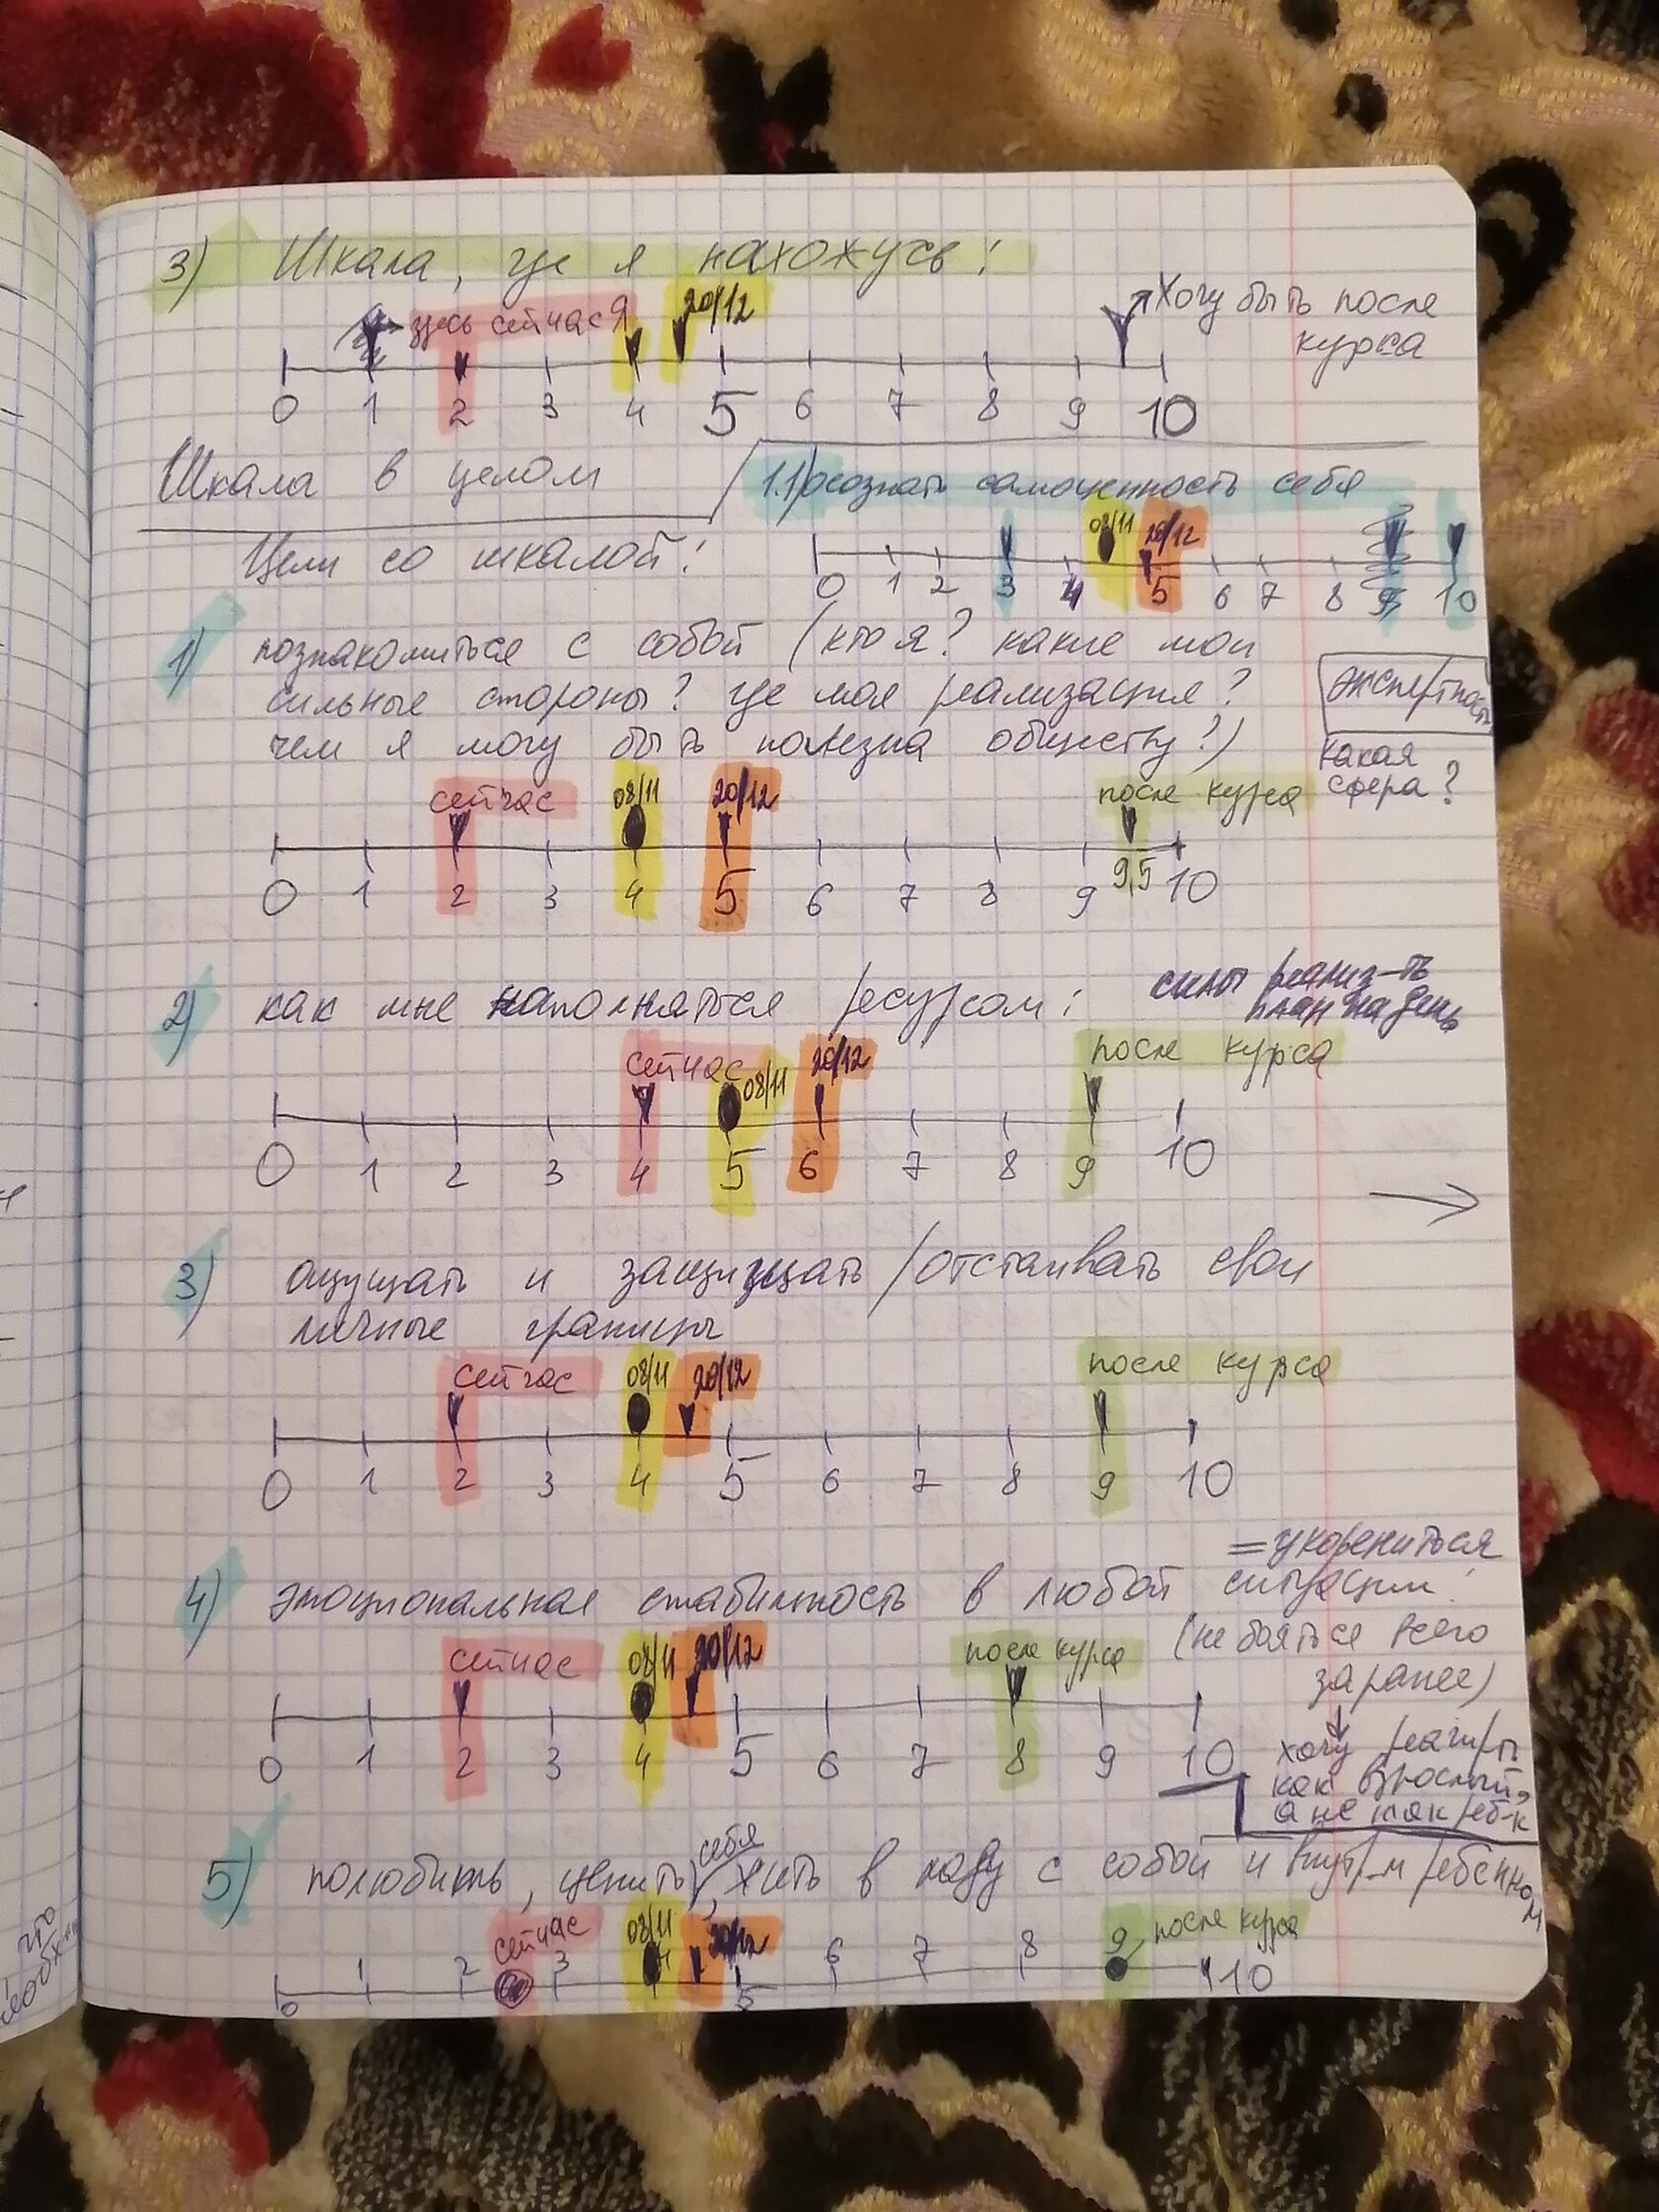 3) Шкала, где я нахожусь:
здесь сейчас я
20/12
Хочу быть после
курса
0 1 2 3 4 5 6 7 8 9 10
Шкала в целом
1.1) осознать самоценность себя
08/11 20/12
0 1 2 3 4 5 6 7 8 9 10
Цели со шкалой:
1) познакомиться с собой (кто я? какие мои
сильные стороны? где моя реализация?
чем я могу быть полезна обществу?)
экспертность
какая
сфера?
сейчас 08/11 20/12 после курса
0 1 2 3 4 5 6 7 8 9 9,5 10
2) как мне наполняться ресурсом:
силы реализ-ть
план на день
сейчас 08/11 20/12 после курса
0 1 2 3 4 5 6 7 8 9 10
3) ощущать и защищать/отстаивать свои
личные границы
сейчас 08/11 20/12 после курса
0 1 2 3 4 5 6 7 8 9 10
=укорениться
4) эмоциональная стабильность в любой ситуации:
(не бояться всего
заранее)
сейчас 08/11 20/12 после курса
0 1 2 3 4 5 6 7 8 9 10
хочу реагир-ть
как взрослый,
а не как реб-к
5) полюбить, ценить себя, жить в ладу с собой и внутр-м ребенком
сейчас 08/11 20/12 после курса
0 1 2 3 4 5 6 7 8 9 10
что